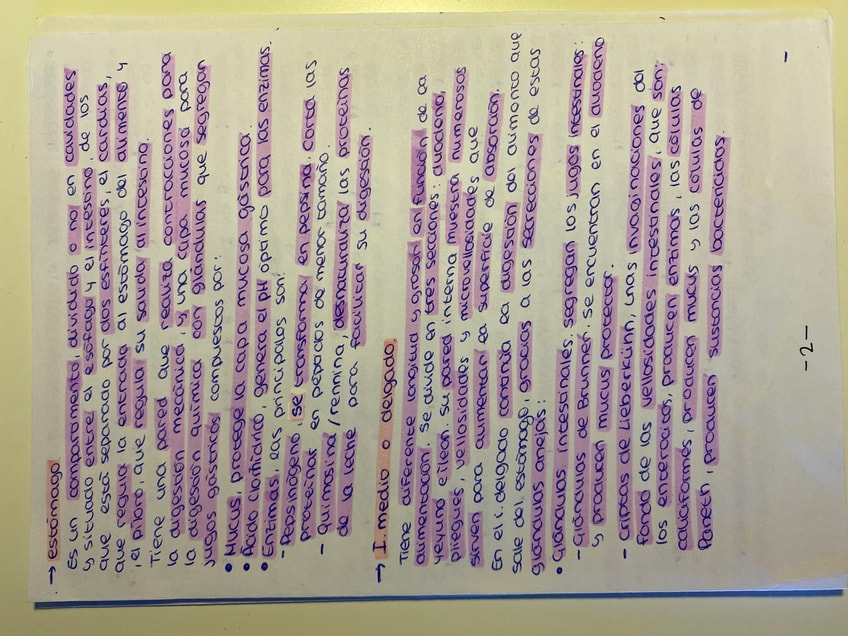 → estómago
Es un compartimento, dividido o no en cavidades
y situado entre el esófago y el intestino, de los
que está separado por dos esfínteres, el cardias,
que regula la entrada al estómago del alimento y
, el píloro, que regula su salida al intestino.
Tiene una pared que realiza contracciones para
la digestión mecánica, y una capa mucosa para
la digestión química con glándulas que segregan
jugos gástricos compuestos por:
• Mucus, protege la capa mucosa gástrica.
• Ácido clorhídrico, genera el pH óptimo para las enzimas.
• Enzimas, las principales son:
- Pepsinógeno, se transforma en pepsina. Corta las
proteínas en pépticos de menor tamaño.
- Quimosina / rennina, desnaturaliza las proteínas
de la leche para facilitar su digestión.
→ I. medio o delgado.
Tiene diferente longitud y grosor en función de la
alimentación. Se divide en tres secciones: duodeno,
yeyuno e íleon. Su pared interna muestra numerosos
pliegues, vellosidades y microvellosidades que
sirven para aumentar la superficie de absorción.
En el i. delgado continúa la digestión del alimento que
sale del estómago, gracias a las secreciones de estas
glándulas anejas:
• Glándulas intestinales. segregan los jugos intestinales:
- Glándulas de Brunner. Se encuentran en el duodeno
y producen mucus protector.
- Criptas de Lieberkünn, unas invaginaciones del
fondo de las vellosidades intestinales, que son:
los enterocitos, producen enzimas, las células
caliciformes, producen mucus y las células de
Paneth, producen sustancias bactericidas.
-2-